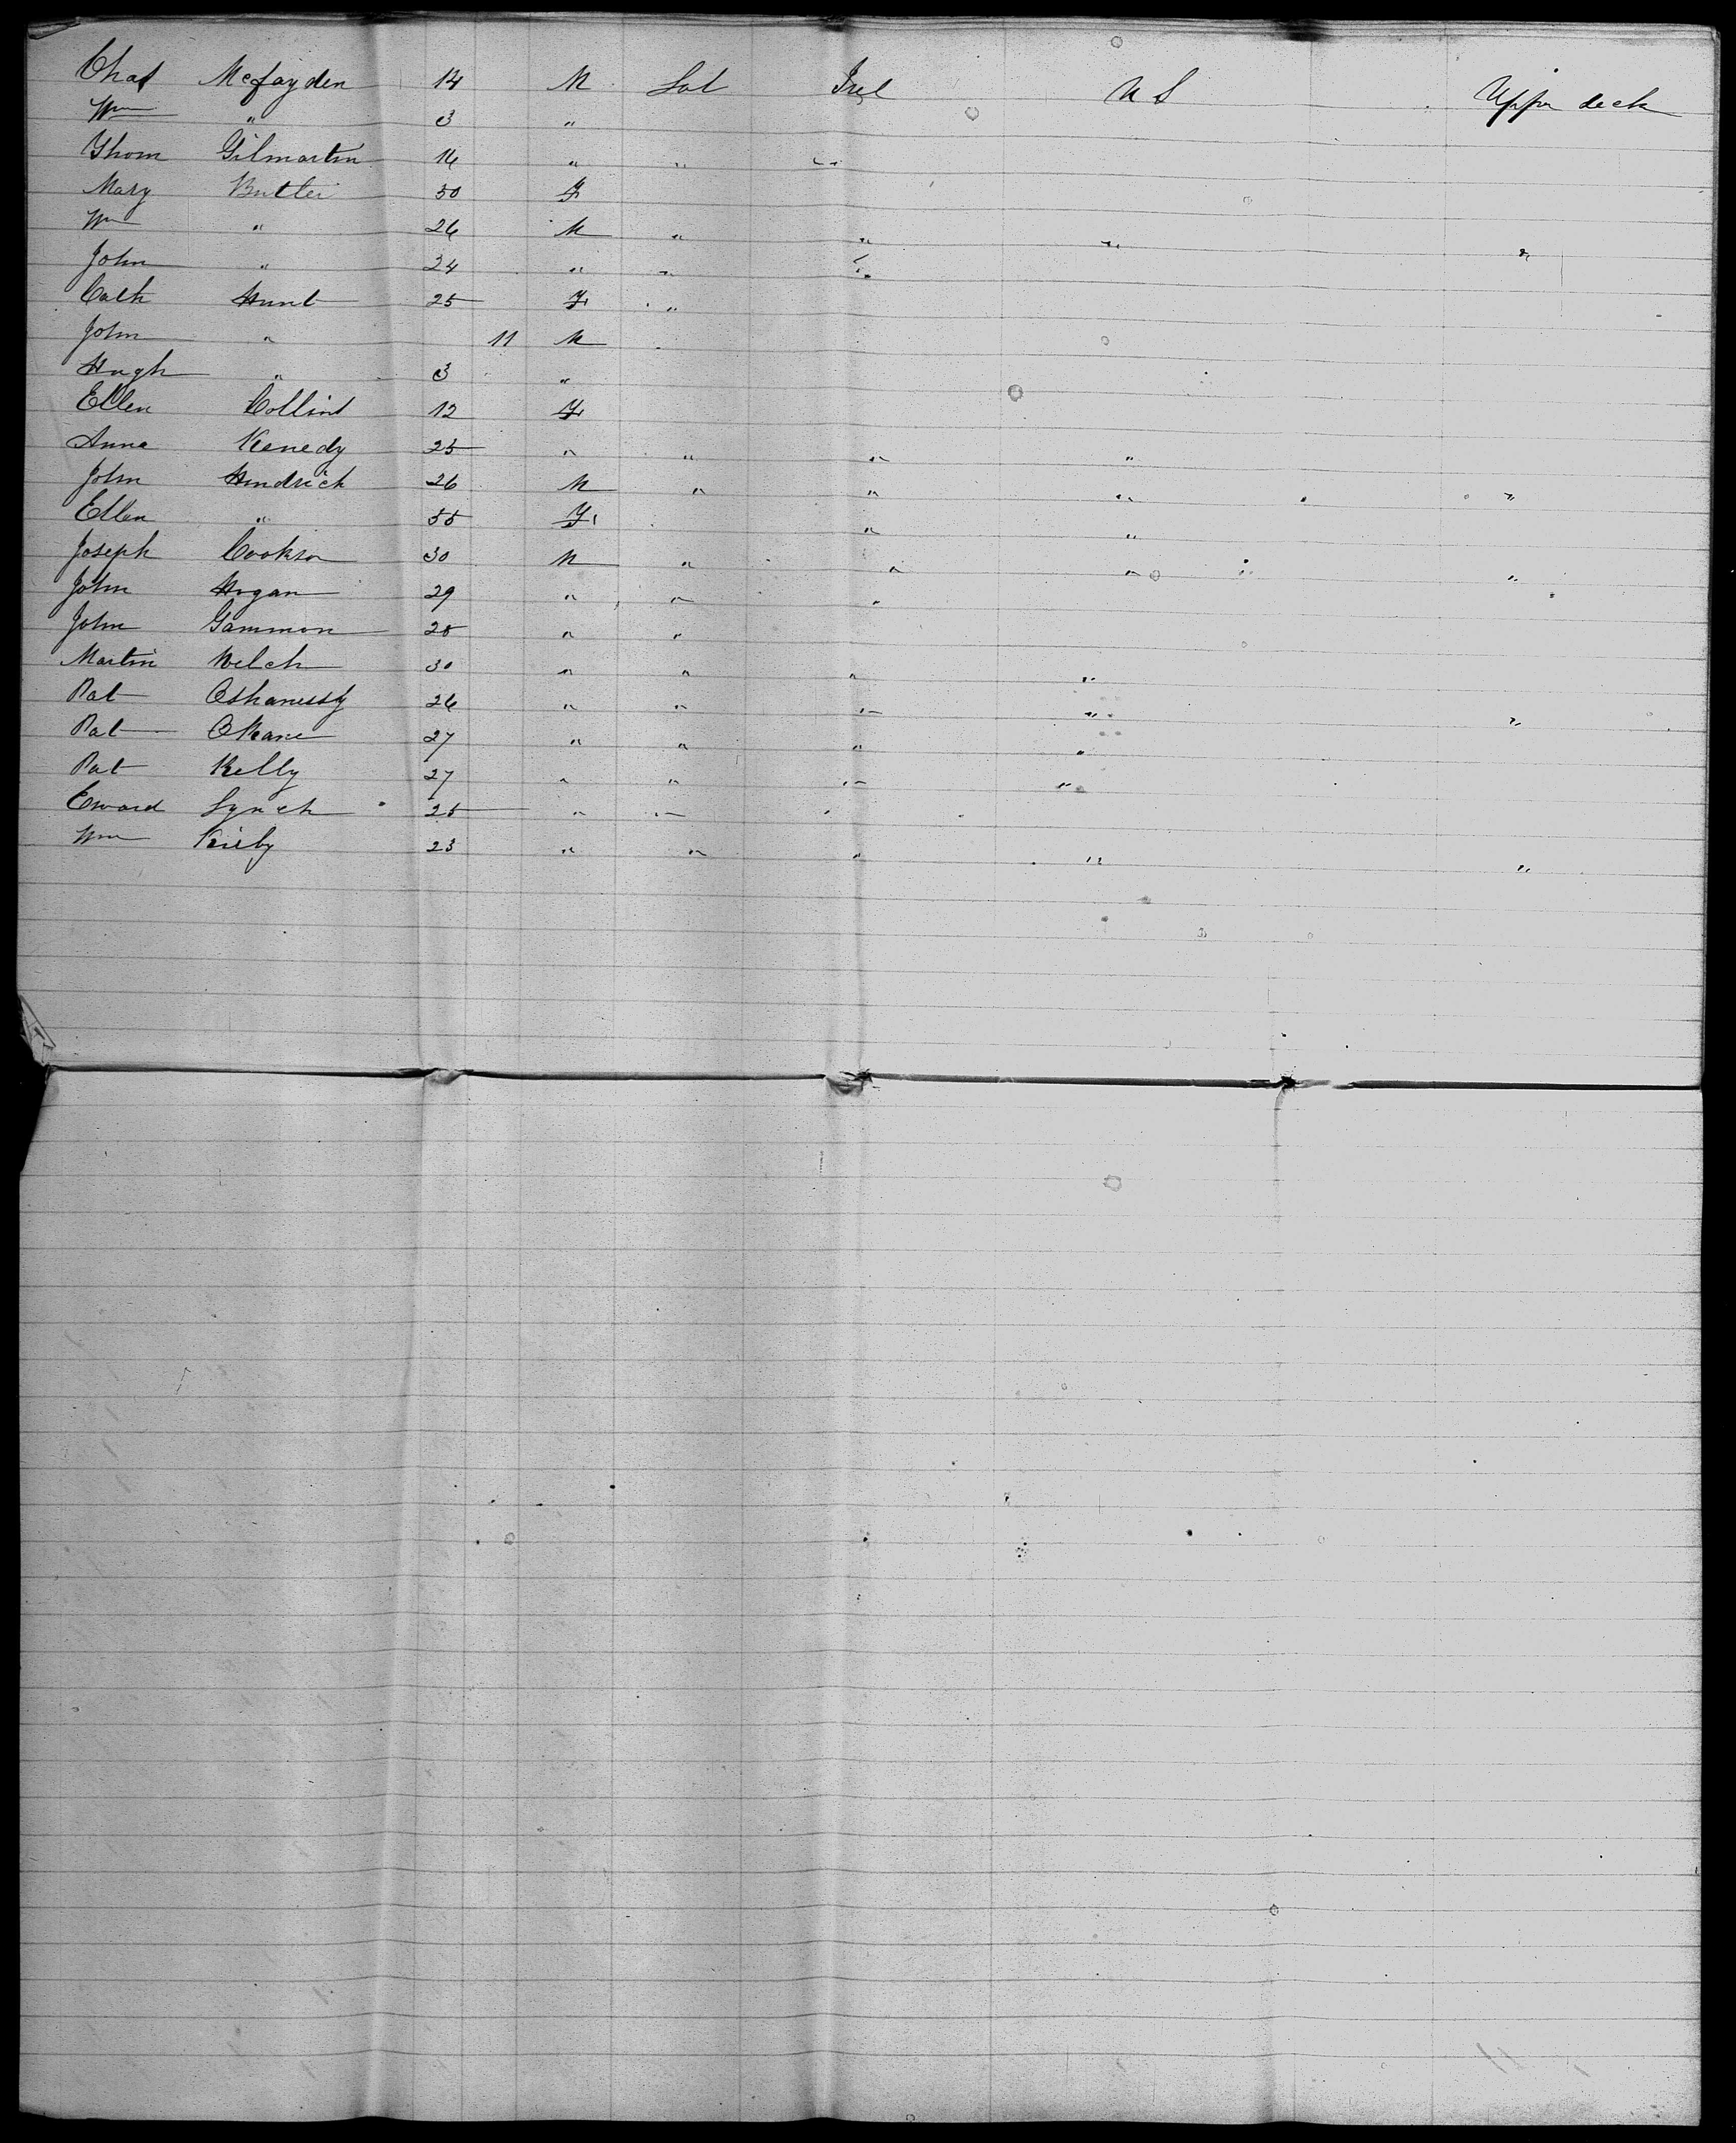 Chas Mcfayden 14 M Lab Irel U S Upper deck
Wm " 3 "
Thom Gilmartin 16 " " "
Mary Butler 50 F
Wm " 26 M " " " "
John " 24 " " "
Cath Hunt 25 F "
John " 11 M
Hugh " 3 "
Ellen Collins 12 F
Anne Kenedy 25 " " " "
John Hendrick 26 M " " " "
Ellen " 55 F " "
Joseph Cookson 30 M " " " "
John Hogan 29 " " "
John Gammon 25 " "
Martin Welch 30 " " " "
Pat Oshanessy 26 " " " " "
Pat OKane 27 " " " "
Pat Kelly 27 " " " "
Eward Lynch 25 " " "
Wm Kirby 23 " " " " "